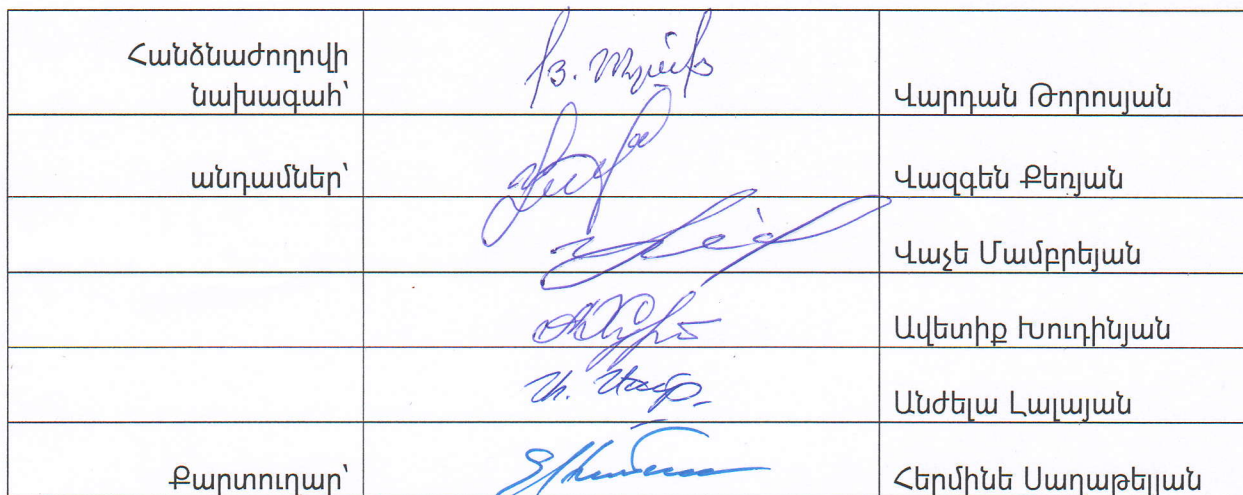 Հանձնաժողովի
նախագահ՝
Վարդան Թորոսյան
անդամներ՝
Վազգեն Քեռյան
Վաչե Մամբրեյան
Ավետիք Խուդինյան
Անժելա Լալայան
Քարտուղար՝
Հերմինե Սաղաթելյան